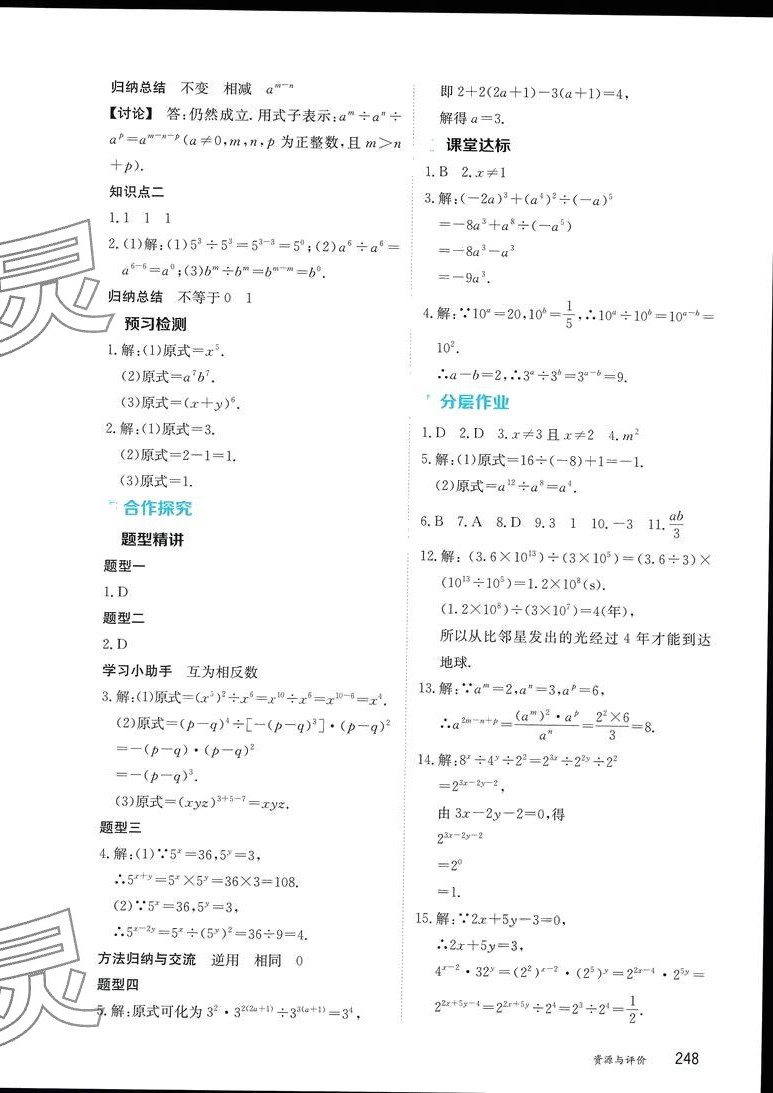 归纳总结 不变 相减 a^{m-n}
【讨论】 答:仍然成立.用式子表示:a^m÷a^n÷
a^p=a^{m-n-p}(a≠0,m,n,p 为正整数,且 m>n
+p).
知识点二
1.1 1 1
2.(1)解:(1)5³÷5³=5^{3-3}=5⁰;(2)a⁶÷a⁶=
a^{6-6}=a⁰;(3)b^m÷b^m=b^{m-m}=b⁰.
归纳总结 不等于0 1
预习检测
1.解:(1)原式=x⁵.
(2)原式=a⁷b⁷.
(3)原式=(x+y)⁶.
2.解:(1)原式=3.
(2)原式=2-1=1.
(3)原式=1.
合作探究
题型精讲
题型一
1.D
题型二
2.D
学习小助手 互为相反数
3.解:(1)原式=(x⁵)²÷x⁶=x¹⁰÷x⁶=x^{10-6}=x⁴.
(2)原式=(p-q)⁴÷[-(p-q)³]·(p-q)²
=-(p-q)·(p-q)²
=-(p-q)³.
(3)原式=(xyz)^{3+5-7}=xyz.
题型三
4.解:(1)∵5^x=36,5^y=3,
∴5^{x+y}=5^x×5^y=36×3=108.
(2)∵5^x=36,5^y=3,
∴5^{x-2y}=5^x÷(5^y)²=36÷9=4.
方法归纳与交流 逆用 相同 0
题型四
5.解:原式可化为 3²·3^{2(2a+1)}÷3^{3(a+1)}=3⁴,
即 2+2(2a+1)-3(a+1)=4,
解得 a=3.
课堂达标
1.B 2.x≠1
3.解:(-2a)³+(a⁴)²÷(-a)⁵
=-8a³+a⁸÷(-a⁵)
=-8a³-a³
=-9a³.
4.解:∵10^a=20,10^b=1/5,∴10^a÷10^b=10^{a-b}=
10².
∴a-b=2,∴3^a÷3^b=3^{a-b}=9.
分层作业
1.D 2.D 3.x≠3 且 x≠2 4.m²
5.解:(1)原式=16÷(-8)+1=-1.
(2)原式=a¹²÷a⁸=a⁴.
6.B 7.A 8.D 9.3 1 10.-3 11.ab/3
12.解:(3.6×10¹³)÷(3×10⁵)=(3.6÷3)×
(10¹³÷10⁵)=1.2×10⁸(s).
(1.2×10⁸)÷(3×10⁷)=4(年),
所以从比邻星发出的光经过 4 年才能到达
地球.
13.解:∵a^m=2,a^n=3,a^p=6,
∴a^{2m-n+p}=(a^m)²·a^p/a^n=2²×6/3=8.
14.解:8^x÷4^y÷2²=2^{3x}÷2^{2y}÷2²
=2^{3x-2y-2},
由 3x-2y-2=0,得
2^{3x-2y-2}
=2⁰
=1.
15.解:∵2x+5y-3=0,
∴2x+5y=3,
4^{x-2}·32^y=(2²)^{x-2}·(2⁵)^y=2^{2x-4}·2^{5y}=
2^{2x+5y-4}=2^{2x+5y}÷2⁴=2³÷2⁴=1/2.
资源与评价 248
灵
灵